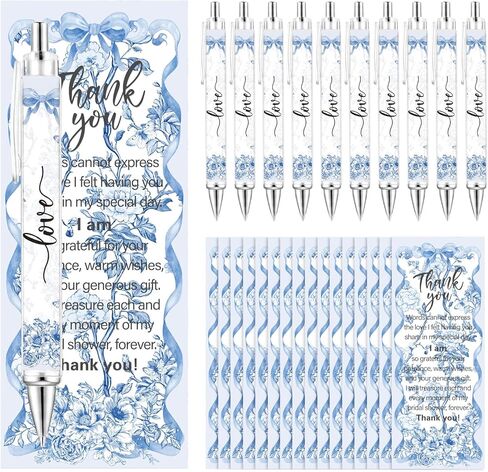 Thank
you
ords cannot express
love I felt having you
in my special day.
I am
grateful for your
ance, warm wishes,
your generous gift.
treasure each and
moment of my
l shower, forever.
hank you!
love
love
love
love
love
love
love
love
love
love
love
Thank
you
Words cannot express
the love I felt having you
share in my special day.
I am
so grateful for your
warm wishes,
and your generous gift.
I will treasure each and
every moment of my
bridal shower, forever.
Thank you!